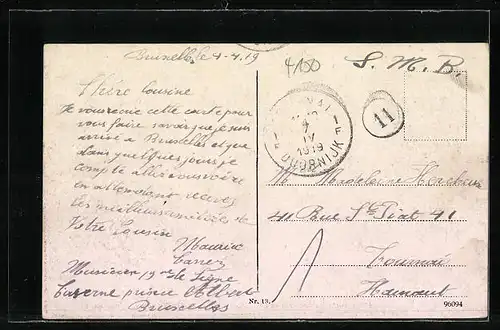 Bruxelles 4-4-19
Chère Cousine
Je vous envoie cette carte pour
vous faire savoir que je suis
arrivé à Bruxelles et que
dans quelques jours je
compte aller vous voir
en attendant
les meilleurs amitiés de
Votre Cousin
Maurice
Musicien 19me de Ligne
Caserne prince Albert
Bruxelles
4/00
S. M. B.
11
1919
DOORNIJK
M
41 Rue St Piat 41
Tournai
Hainaut
1
Nr. 13.
96094